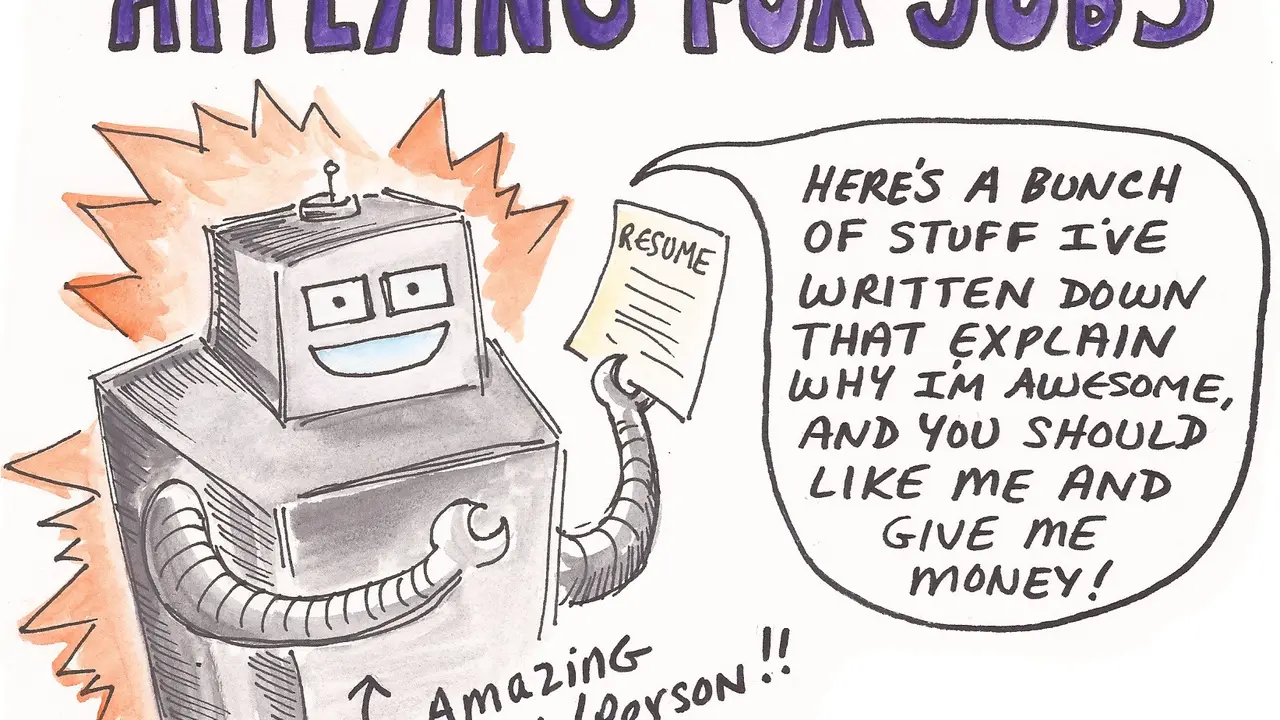 APPLYING FOR JOBS
RESUME
HERE'S A BUNCH
OF STUFF I'VE
WRITTEN DOWN
THAT EXPLAIN
WHY I'M AWESOME,
AND YOU SHOULD
LIKE ME AND
GIVE ME
MONEY!
AMAZING
PERSON!!